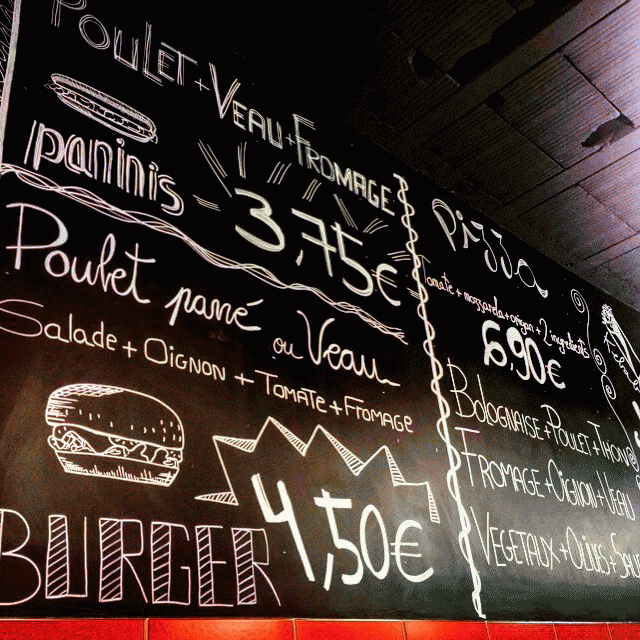 POULET + VEAU + FROMAGE
paninis
3,75€
Poulet pané ou Veau
Salade + Oignon + Tomate + Fromage
BURGER
4,50€
Pizza
Tomate + mozzarela + origan + 2 ingredients
6,90€
BOLOGNAISE + POULET + THON
FROMAGE + OIGNON + VEAU
VEGETAUX + OLIVES +